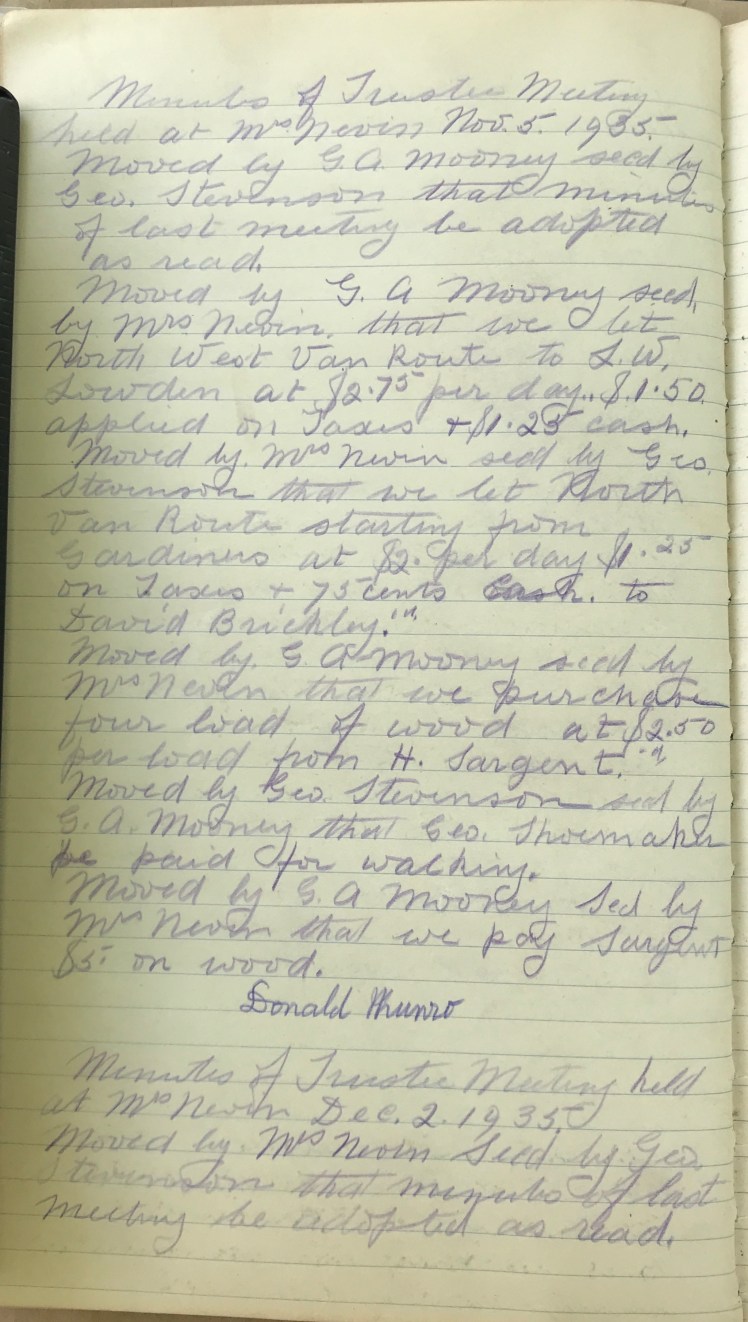 Minutes of Trustee Meeting
held at Mrs Nevin Nov. 5. 1935.
Moved by G. A. Mooney secd by
Geo. Stevenson that minutes
of last meeting be adopted
as read.
Moved by G. A Mooney secd,
by Mrs Nevin. that we let
North West Van Route to L.W.
Lowden at $2.75 per day.. $.1.50.
applied on Taxes + $1.25 cash.
Moved by. Mrs Nevin secd by Geo.
Stevenson that we let North
Van Route starting from
Gardiners at $2. per day $1.25
on Taxes + 75 cents Cash. to
David Brickley.
Moved by. G. A Mooney secd by
Mrs Nevin that we purchase
four load of wood at $2.50
per load from H. Sargent.
Moved by Geo. Stevenson secd by
G. A. Mooney that Geo. Shoemaker
be paid for
Moved by G. A Mooney Secd by
Mrs Nevin that we pay Sargent
$5 on wood.
Donald Munro
Minutes of Trustee Meeting held
at Mrs Nevin Dec. 2. 1935.
Moved by. Mrs Nevin Secd. by Geo.
Stevenson that minutes of last
meeting be adopted as read.